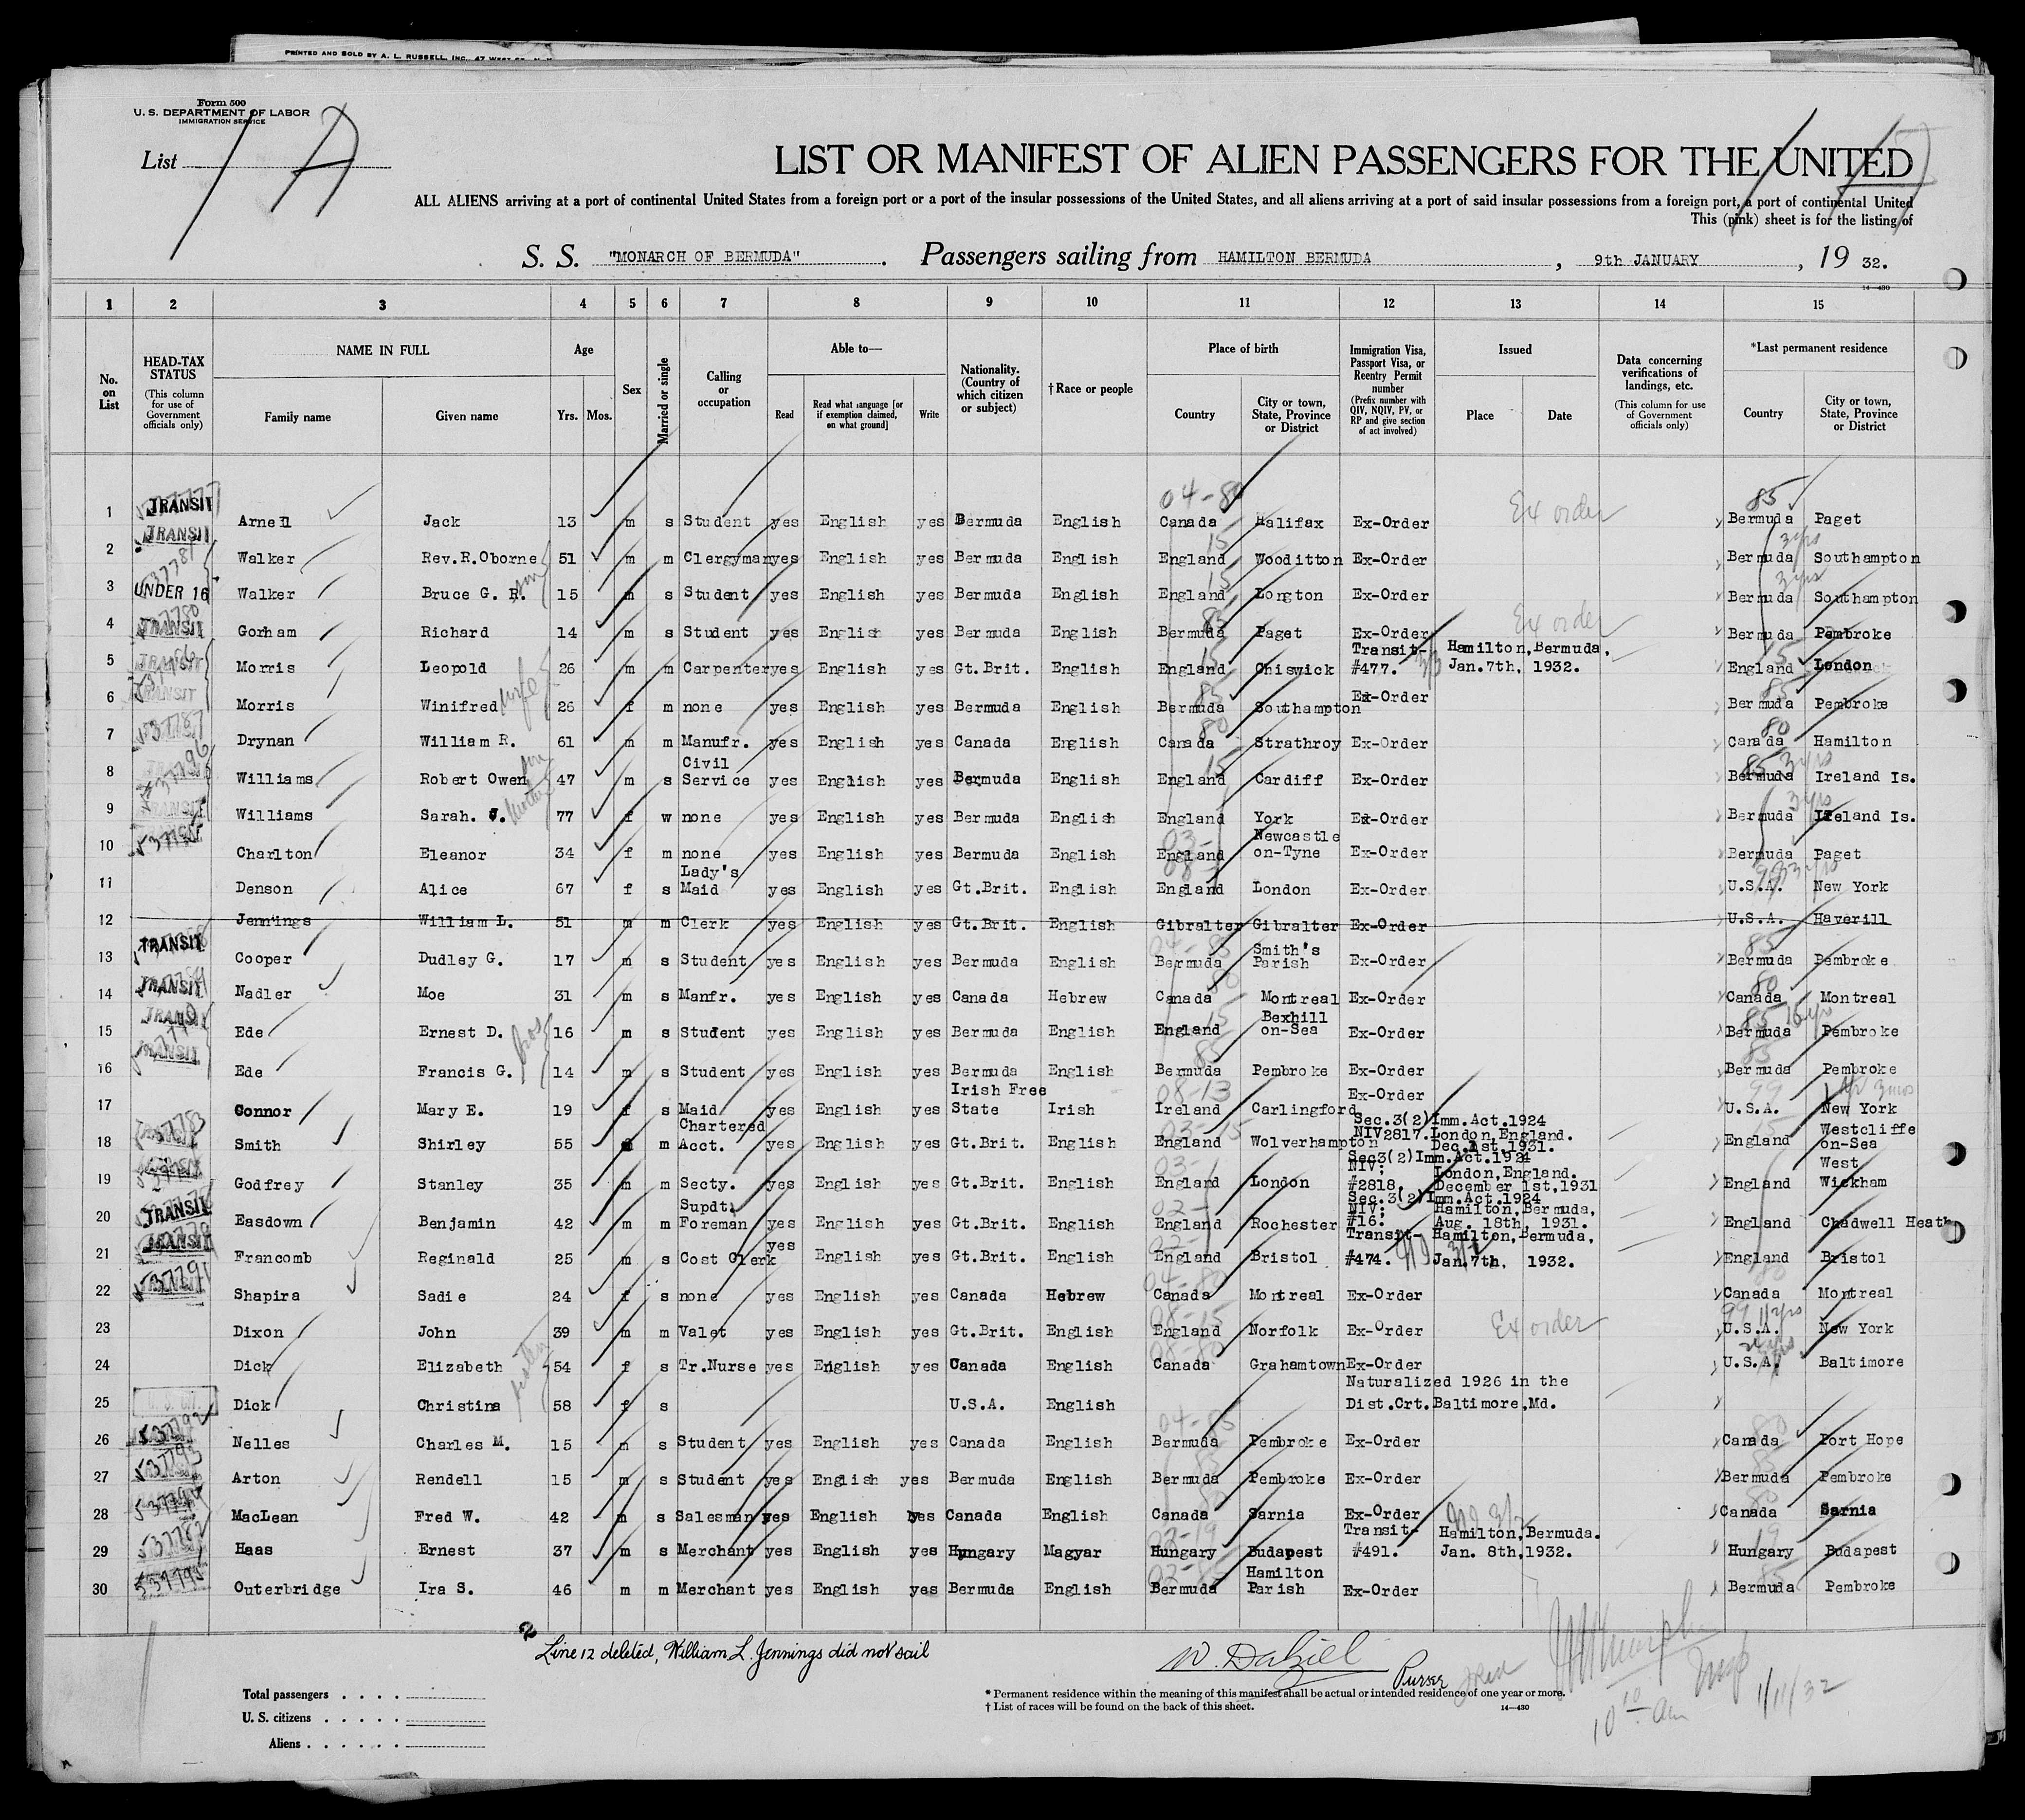 PRINTED AND SOLD BY A. L. RUSSELL, INC., 47 WEST ST. N. Y.
Form 500
U. S. DEPARTMENT OF LABOR
IMMIGRATION SERVICE
List 1 A
LIST OR MANIFEST OF ALIEN PASSENGERS FOR THE UNITED
ALL ALIENS arriving at a port of continental United States from a foreign port or a port of the insular possessions of the United States, and all aliens arriving at a port of said insular possessions from a foreign port, a port of continental United
This (pink) sheet is for the listing of
S. S. "MONARCH OF BERMUDA" . Passengers sailing from HAMILTON BERMUDA , 9th JANUARY , 19 32.
14—430
1 2 3 4 5 6 7 8 9 10 11 12 13 14 15
No. on List
HEAD-TAX STATUS (This column for use of Government officials only)
NAME IN FULL Family name Given name
Age Yrs. Mos.
Sex
Married or single
Calling or occupation
Able to— Read Read what language [or if exemption claimed, on what ground] Write
Nationality. (Country of which citizen or subject)
†Race or people
Place of birth Country City or town, State, Province or District
Immigration Visa, Passport Visa, or Reentry Permit number (Prefix number with QIV, NQIV, PV, or RP and give section of act involved)
Issued Place Date
Data concerning verifications of landings, etc. (This column for use of Government officials only)
*Last permanent residence Country City or town, State, Province or District
1 TRANSIT Arnell Jack 13 m s Student yes English yes Bermuda English Canada Halifax Ex-Order Ex order Bermuda Paget
2 TRANSIT Walker Rev.R.Oborne 51 m m Clergyman yes English yes Bermuda English England Wooditton Ex-Order Bermuda Southampton
3 UNDER 16 Walker Bruce G. R. son 15 m s Student yes English yes Bermuda English England Longton Ex-Order Bermuda Southampton
4 TRANSIT Gorham Richard 14 m s Student yes English yes Bermuda English Bermuda Paget Ex-Order Ex order Bermuda Pembroke
5 TRANSIT Morris Leopold 26 m m Carpenter yes English yes Gt.Brit. English England Chiswick Transit- #477. Hamilton,Bermuda, Jan.7th, 1932. England London
6 TRANSIT Morris Winifred wife 26 f m none yes English yes Bermuda English Bermuda Southampton Ex-Order Bermuda Pembroke
7 Drynan William R. 61 m m Manufr. yes English yes Canada English Canada Strathroy Ex-Order Canada Hamilton
8 Williams Robert Owen son 47 m s Civil Service yes English yes Bermuda English England Cardiff Ex-Order Bermuda Ireland Is.
9 TRANSIT Williams Sarah. J. mother 77 f w none yes English yes Bermuda English England York Ex-Order Bermuda Ireland Is.
10 Charlton Eleanor 34 f m none yes English yes Bermuda English England Newcastle on-Tyne Ex-Order Bermuda Paget
11 Denson Alice 67 f s Lady's Maid yes English yes Gt.Brit. English England London Ex-Order U.S.A. New York
12 Jennings William L. 51 m m Clerk yes English yes Gt.Brit. English Gibralter Gibralter Ex-Order U.S.A. Haverill
13 TRANSIT Cooper Dudley G. 17 m s Student yes English yes Bermuda English Bermuda Smith's Parish Ex-Order Bermuda Pembroke
14 TRANSIT Nadler Moe 31 m s Manfr. yes English yes Canada Hebrew Canada Montreal Ex-Order Canada Montreal
15 TRANSIT Ede Ernest D. bros 16 m s Student yes English yes Bermuda English England Bexhill on-Sea Ex-Order Bermuda Pembroke
16 TRANSIT Ede Francis G. 14 m s Student yes English yes Bermuda English Bermuda Pembroke Ex-Order Bermuda Pembroke
17 Connor Mary E. 19 f s Maid yes English yes Irish Free State Irish Ireland Carlingford Ex-Order U.S.A. New York
18 Smith Shirley 55 m Chartered Acct. yes English yes Gt.Brit. English England Wolverhampton Sec.3(2)Imm.Act.1924 NIV2817.London,England. Dec.1st,1931. England Westcliffe on-Sea
19 Godfrey Stanley 35 m m Secty. yes English yes Gt.Brit. English England London Sec3(2)Imm.Act.1924 NIV; #2818, London,England. December 1st,1931 England West Wickham
20 TRANSIT Easdown Benjamin 42 m m Supdt. Foreman yes English yes Gt.Brit. English England Rochester Sec.3(2)Imm.Act.1924 NIV; #16. Hamilton,Bermuda, Aug. 18th, 1931. England Chadwell Heath
21 TRANSIT Francomb Reginald 25 m s Cost Clerk yes English yes Gt.Brit. English England Bristol Transit- #474. Hamilton,Bermuda, Jan.7th, 1932. England Bristol
22 Shapira Sadie 24 f s none yes English yes Canada Hebrew Canada Montreal Ex-Order Canada Montreal
23 Dixon John 39 m m Valet yes English yes Gt.Brit. English England Norfolk Ex-Order Ex order U.S.A. New York
24 Dick Elizabeth 54 f s Tr.Nurse yes English yes Canada English Canada Grahamtown Ex-Order U.S.A. Baltimore
25 Dick Christina 58 f s U.S.A. English Naturalized 1926 in the Dist.Crt.Baltimore,Md.
26 Nelles Charles M. 15 m s Student yes English yes Canada English Bermuda Pembroke Ex-Order Canada Port Hope
27 Arton Rendell 15 m s Student yes English yes Bermuda English Bermuda Pembroke Ex-Order Bermuda Pembroke
28 MacLean Fred W. 42 m s Salesman yes English yes Canada English Canada Sarnia Ex-Order Canada Sarnia
29 Haas Ernest 37 m s Merchant yes English yes Hungary Magyar Hungary Budapest Transit- #491. Hamilton,Bermuda. Jan. 8th,1932. Hungary Budapest
30 Outerbridge Ira S. 46 m m Merchant yes English yes Bermuda English Bermuda Hamilton Parish Ex-Order Bermuda Pembroke
Line 12 deleted, William L. Jennings did not sail
W. Dalziel Purser
Total passengers . . . .
U. S. citizens . . . . .
Aliens . . . . . .
* Permanent residence within the meaning of this manifest shall be actual or intended residence of one year or more.
† List of races will be found on the back of this sheet.
14—430
10 10 am 1/11/32